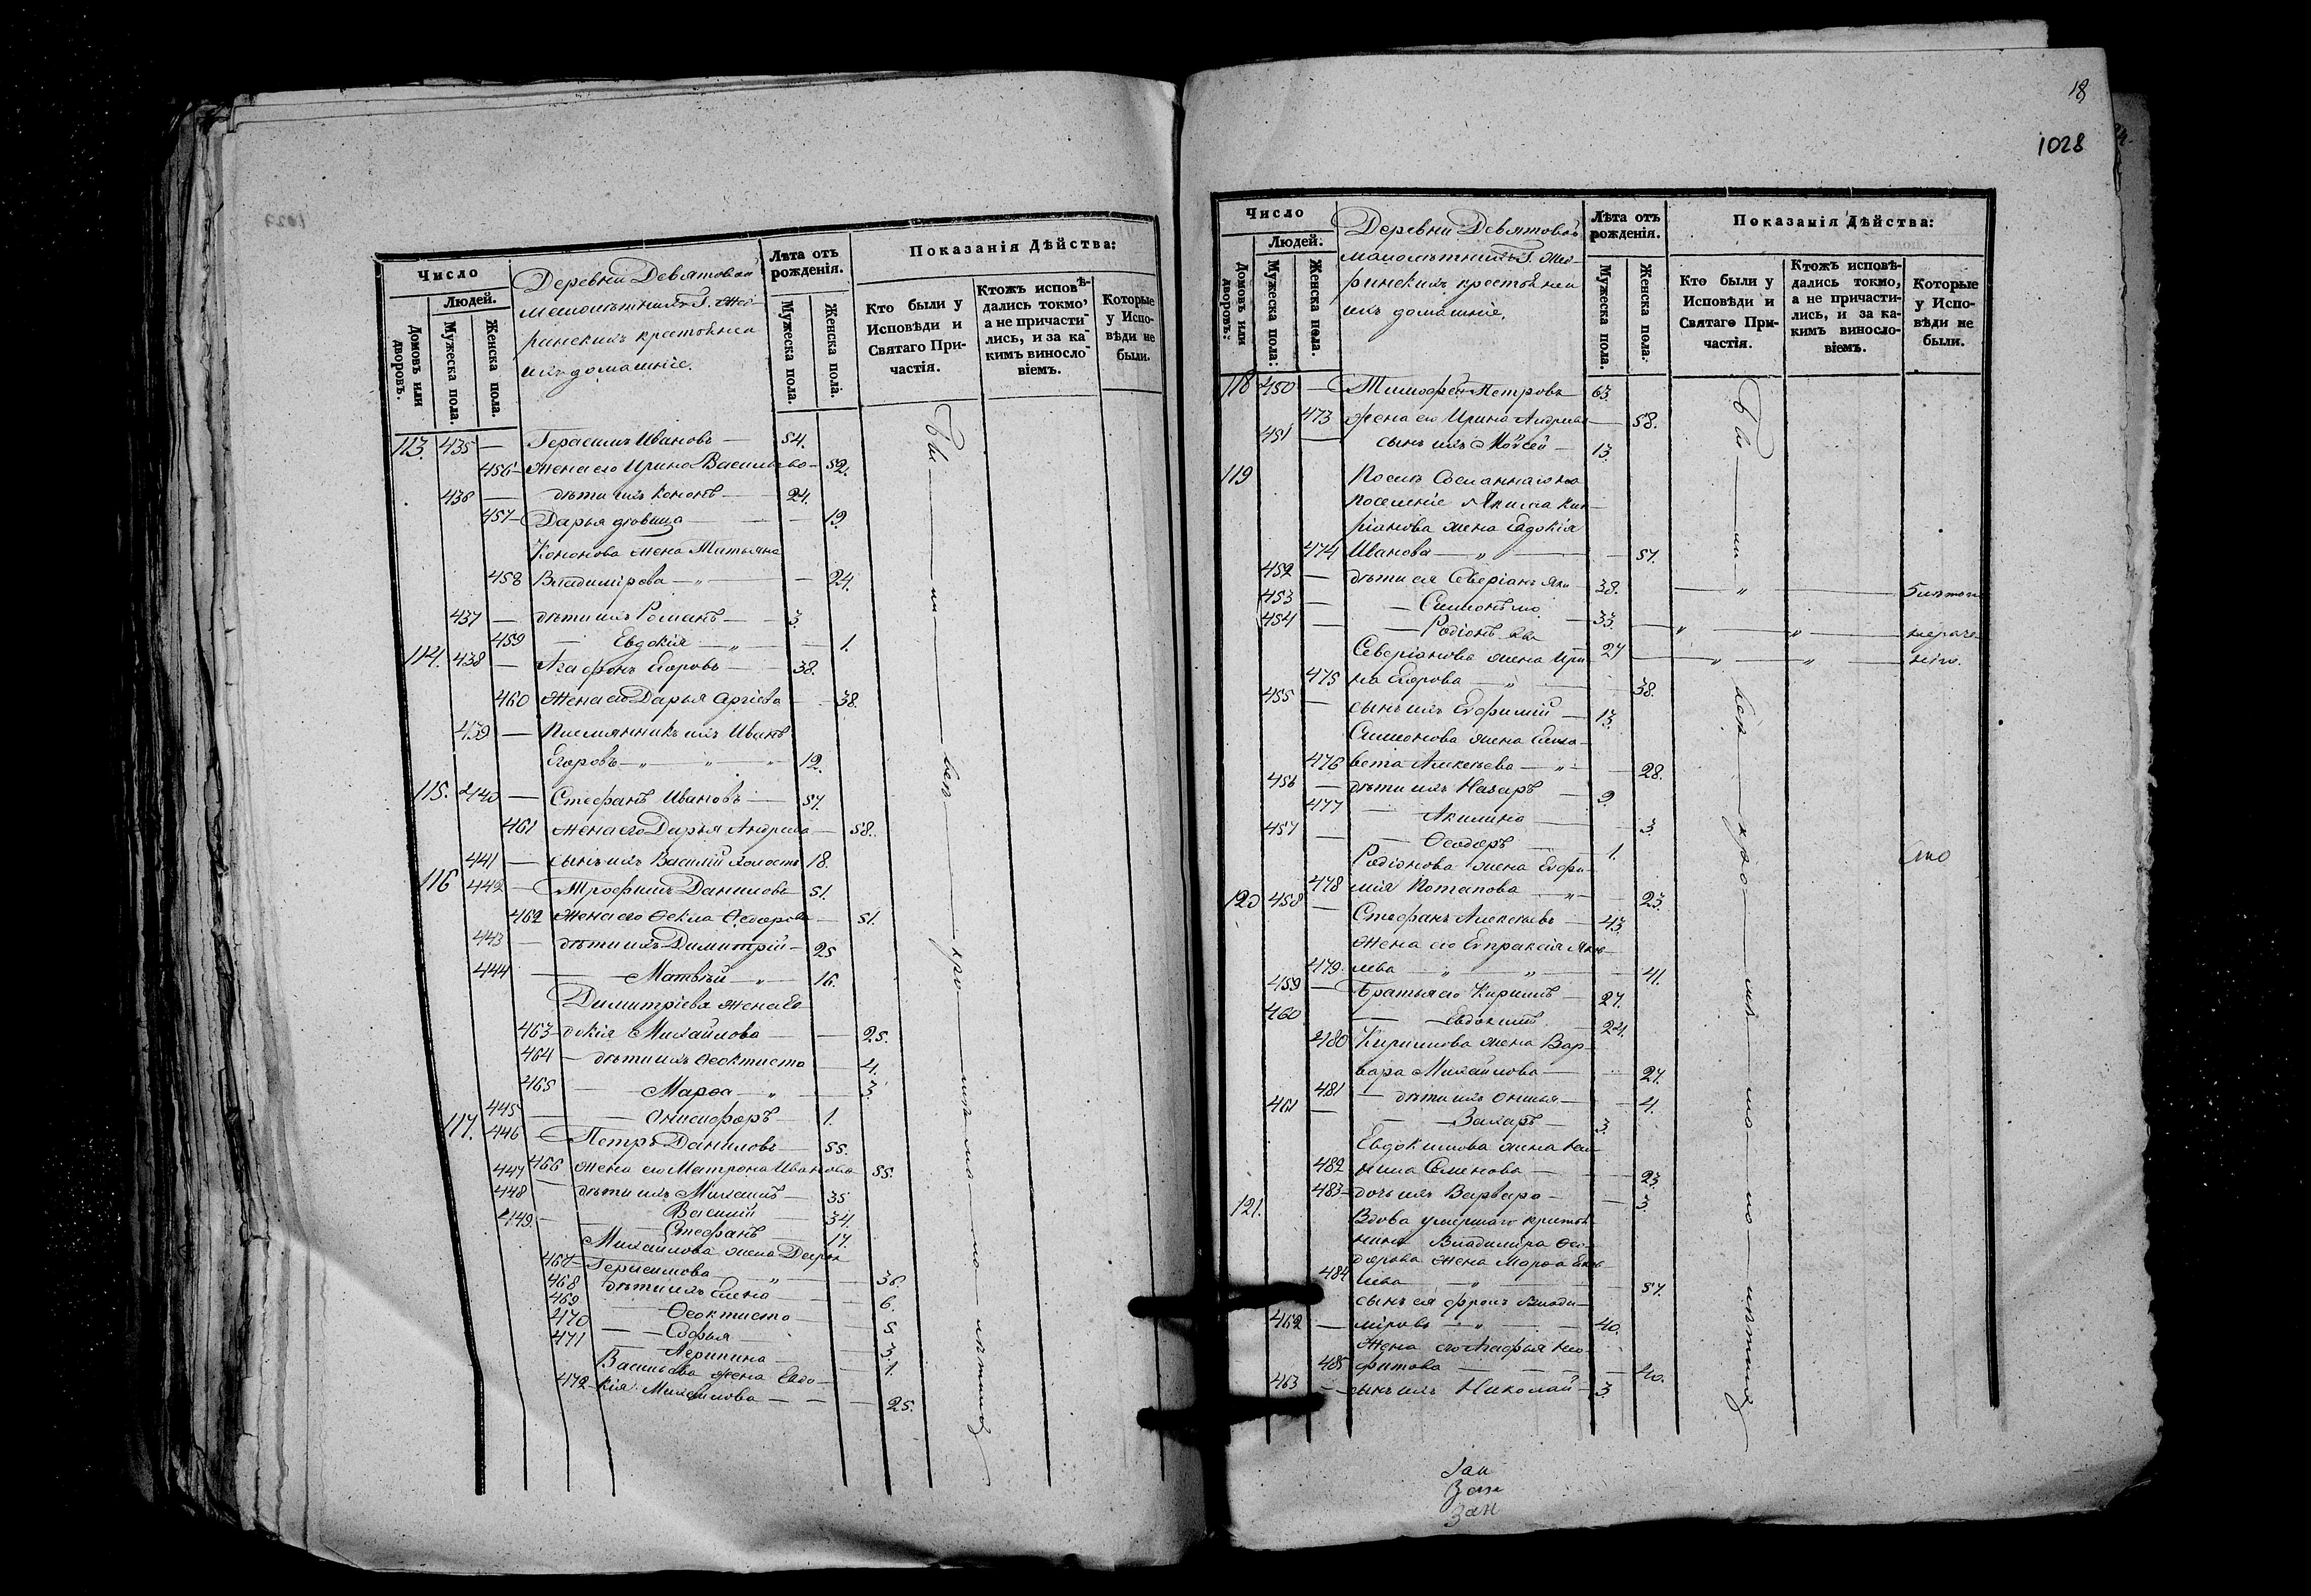 Число
Людей.
Домовъ или дворовъ.
Мужеска пола
Женска пола.
Деревни Девятовой
крестьяне и
ихъ домашніе.
Лѣта отъ рожденія.
Мужеска пола.
Женска пола.
Показанія Дѣйства:
Кто были у Исповѣди и Святаго Причастія.
Ктожъ исповѣдались токмо, а не причастились, и за какимъ винословіемъ.
Которые у Исповѣди не были.
113. 435 — Герасимъ Ивановъ — 54.
456 — жена его Ирина Васильева — 52.
436 — дѣти ихъ Кононъ — 24.
457 — Дарья дѣвица — 19.
Кононова жена Татьяна
458 Владимірова — 24.
437 — дѣти ихъ Романъ — 3.
459 — Евдокія — 1.
114. 438 — Агафонъ Егоровъ — 38.
460 жена его Дарья — 38.
439 — Племянникъ ихъ Иванъ
Егоровъ — 12.
115. 440 — Стефанъ Ивановъ — 57.
461 жена его Дарья Андреева — 58.
441 — сынъ ихъ Василій холостъ 18.
116 442 — Трофимъ Даниловъ 51.
462 жена его Ѳекла Ѳедорова — 51.
443 — дѣти ихъ Димитрій — 25
444 — Матвѣй — 16.
Димитріева жена Ев-
463 докія Михайлова — 25.
464 — дѣти ихъ Ѳеоктиста — 4.
465 — Марѳа — 3.
445 — Онисифоръ — 1.
117. 446 — Петръ Даниловъ — 55.
466 жена его Матрона Иванова 55.
447 — дѣти ихъ Михаилъ — 35
448 Василій — 34.
449. — Стефанъ — 17.
Михайлова жена Дарья
467 Герасимова — 36.
468 дѣти ихъ Елена — 6.
469 Ѳеоктиста 5.
470 — Софья — 3.
471 — Агрипина 1.
Васильева жена Евдо-
472 кія Михайлова — 25.
18
1028
Число
Людей.
Домовъ или дворовъ.
Мужеска пола.
Женска пола.
Деревни Девятовой
крестьяне и
ихъ домашніе.
Лѣта отъ рожденія.
Мужеска пола.
Женска пола.
Показанія Дѣйства:
Кто были у Исповѣди и Святаго Причастія.
Ктожъ исповѣдались токмо, а не причастились, и за какимъ винословіемъ.
Которые у Исповѣди не были.
118 450 — Тимофей Петровъ 63.
473 жена его Ирина Андреева 58.
451 — сынъ ихъ Моѵсей — 13.
119 Послѣ сосланнаго на
поселеніе Акима Кип-
ріанова жена Евдокія
474 Иванова — 57.
452 — дѣти ея Северіанъ 38.
453 — Симонъ 33.
454 — Родіонъ 27
Северіанова жена Ири-
475 на Егорова — 38.
455 — сынъ ихъ Евфимій — 13.
Симонова жена Елиса-
476 вета Алексѣева — 28.
456 — дѣти ихъ Назаръ — 9.
477 — Акилина — 3.
457 — Ѳеодоръ — 1.
Родіонова жена Евфи-
478 мія Потапова — 23.
120 458 — Стефанъ Алексѣевъ — 43.
жена его Евпраксія Яков-
479 лева — 41.
459 — братья его Кирилъ — 27.
460 — Евдокимъ — 24.
480 Кирилова жена Вар-
вара Михайлова — 27.
481 — дѣти ихъ — 4.
461 — Захаръ — 3.
Евдокимова жена
482 Семенова — 23
483 — дочь ихъ Варвара — 3.
121. Вдова умершаго крестья-
нина Владимира Ѳео-
дорова жена Марѳа Яков-
484 лева — 57.
сынъ ея Фролъ Влади-
462 — міровъ — 40.
жена его Агафья Нео-
485 фитова — 40.
463 — сынъ ихъ Николай — 3.
Зап
Зап
Зап